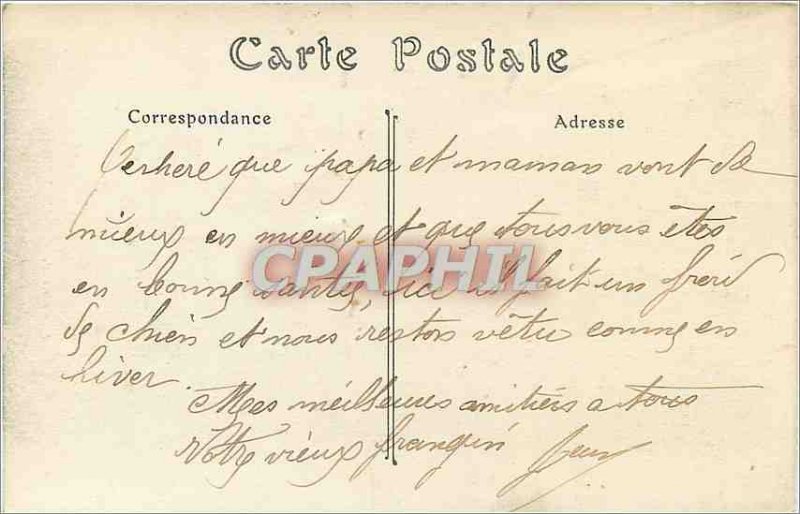 Carte Postale
Correspondance
Adresse
que papa et maman vont de
mieux en mieux et que tous vous êtes
CPAPHIL
en bonne santé, ici il fait un froid
de chien et nous restons vêtu comme en
hiver.
Mes meilleures amitiés a tous
Votre vieux frangin Jean